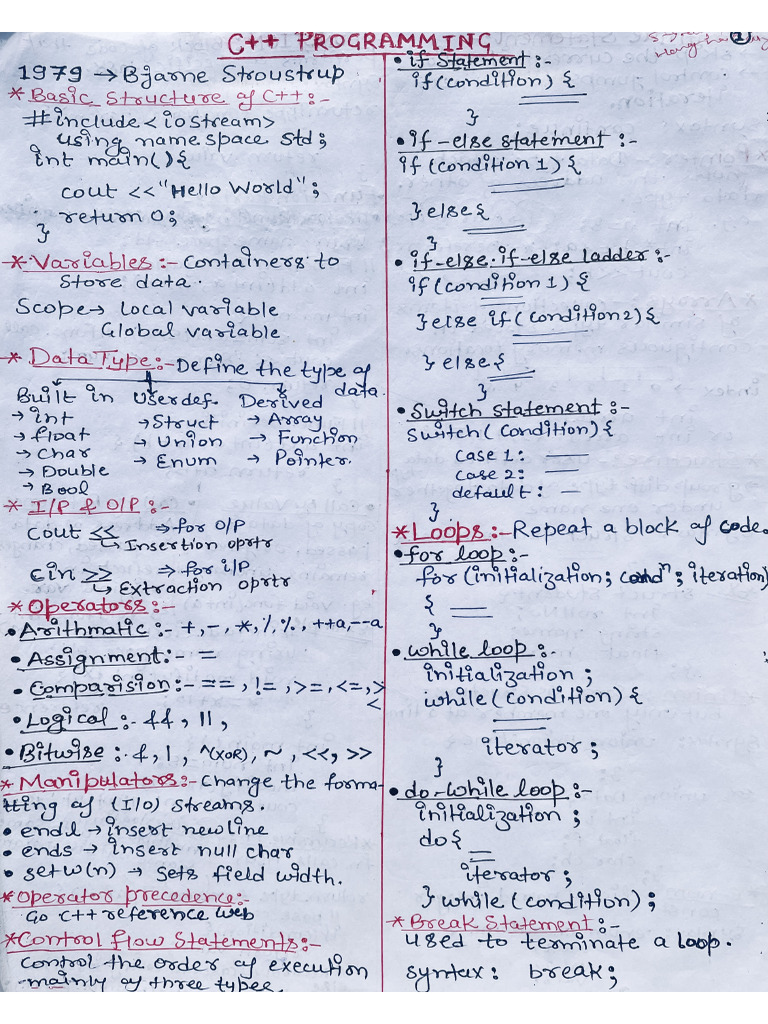 C++ PROGRAMMING
1
1979 → Bjarne Stroustrup
* Basic Structure of C++ :-
#include <iostream>
using namespace std;
int main(){
cout << "Hello World";
return 0;
}
* Variables :- Containers to
store data.
Scope → Local variable
Global variable
* Data Type :- Define the type of
data.
Built in Userdef. Derived
→ int → Struct → Array
→ float → Union → Function
→ Char → Enum → Pointer.
→ Double
→ Bool
* I/P & O/P :-
Cout << ⇒ for O/P
↳ Insertion oprtr
Cin >> ⇒ for i/P
↳ Extraction oprtr
* Operators :-
• Arithmatic :- +, -, *, /, %, ++a, --a
• Assignment :- =
• Comparision :- ==, !=, >=, <=, >
<
• Logical :- &&, ||,
• Bitwise : &, |, ^(XOR), ~, <<, >>
* Manipulators :- Change the forma-
tting of (I/O) streams.
• endl → insert newline
• ends → insert null char
• setw(n) → sets field width.
* Operator precedence :-
Go C++ reference web
* Control flow Statements :-
Control the order of execution
mainly of three types.
• if Statement :-
if(condition) {
}
• if-else statement :-
if (condition 1) {
} else {
}
• if-else-if-else ladder :-
if (condition 1) {
} else if (condition 2) {
} else {
}
• Switch statement :-
switch (Condition) {
case 1:
case 2:
default :
}
* Loops :- Repeat a block of code.
• for loop :-
for (initialization; condⁿ; iteration)
{
}
• while loop :-
initialization ;
while (condition) {
iterator ;
}
• do-while loop :-
initialization ;
do {
iterator ;
} while (condition) ;
* Break Statement :-
used to terminate a loop.
syntax : break;